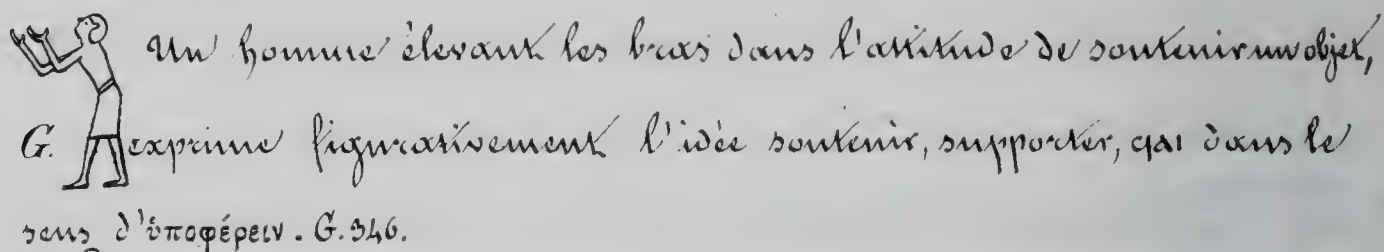 Un homme élevant les bras dans l'attitude de soutenir un objet,
G. exprime figurativement l'idée soutenir, supporter, ϥⲁⲓ dans le
sens d'ὑποφέρειν. G. 346.